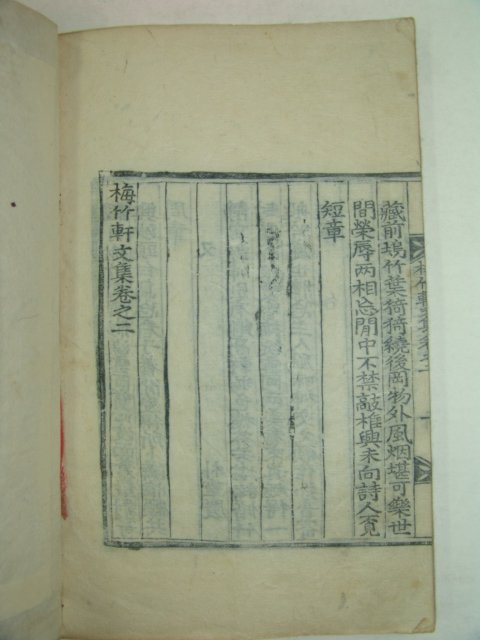 藏前塢竹葉猗猗繞後岡物外風烟堪可樂世
間榮辱两相忘閒中不禁敲椎興未向詩人覔
短章
梅竹軒文集卷之二